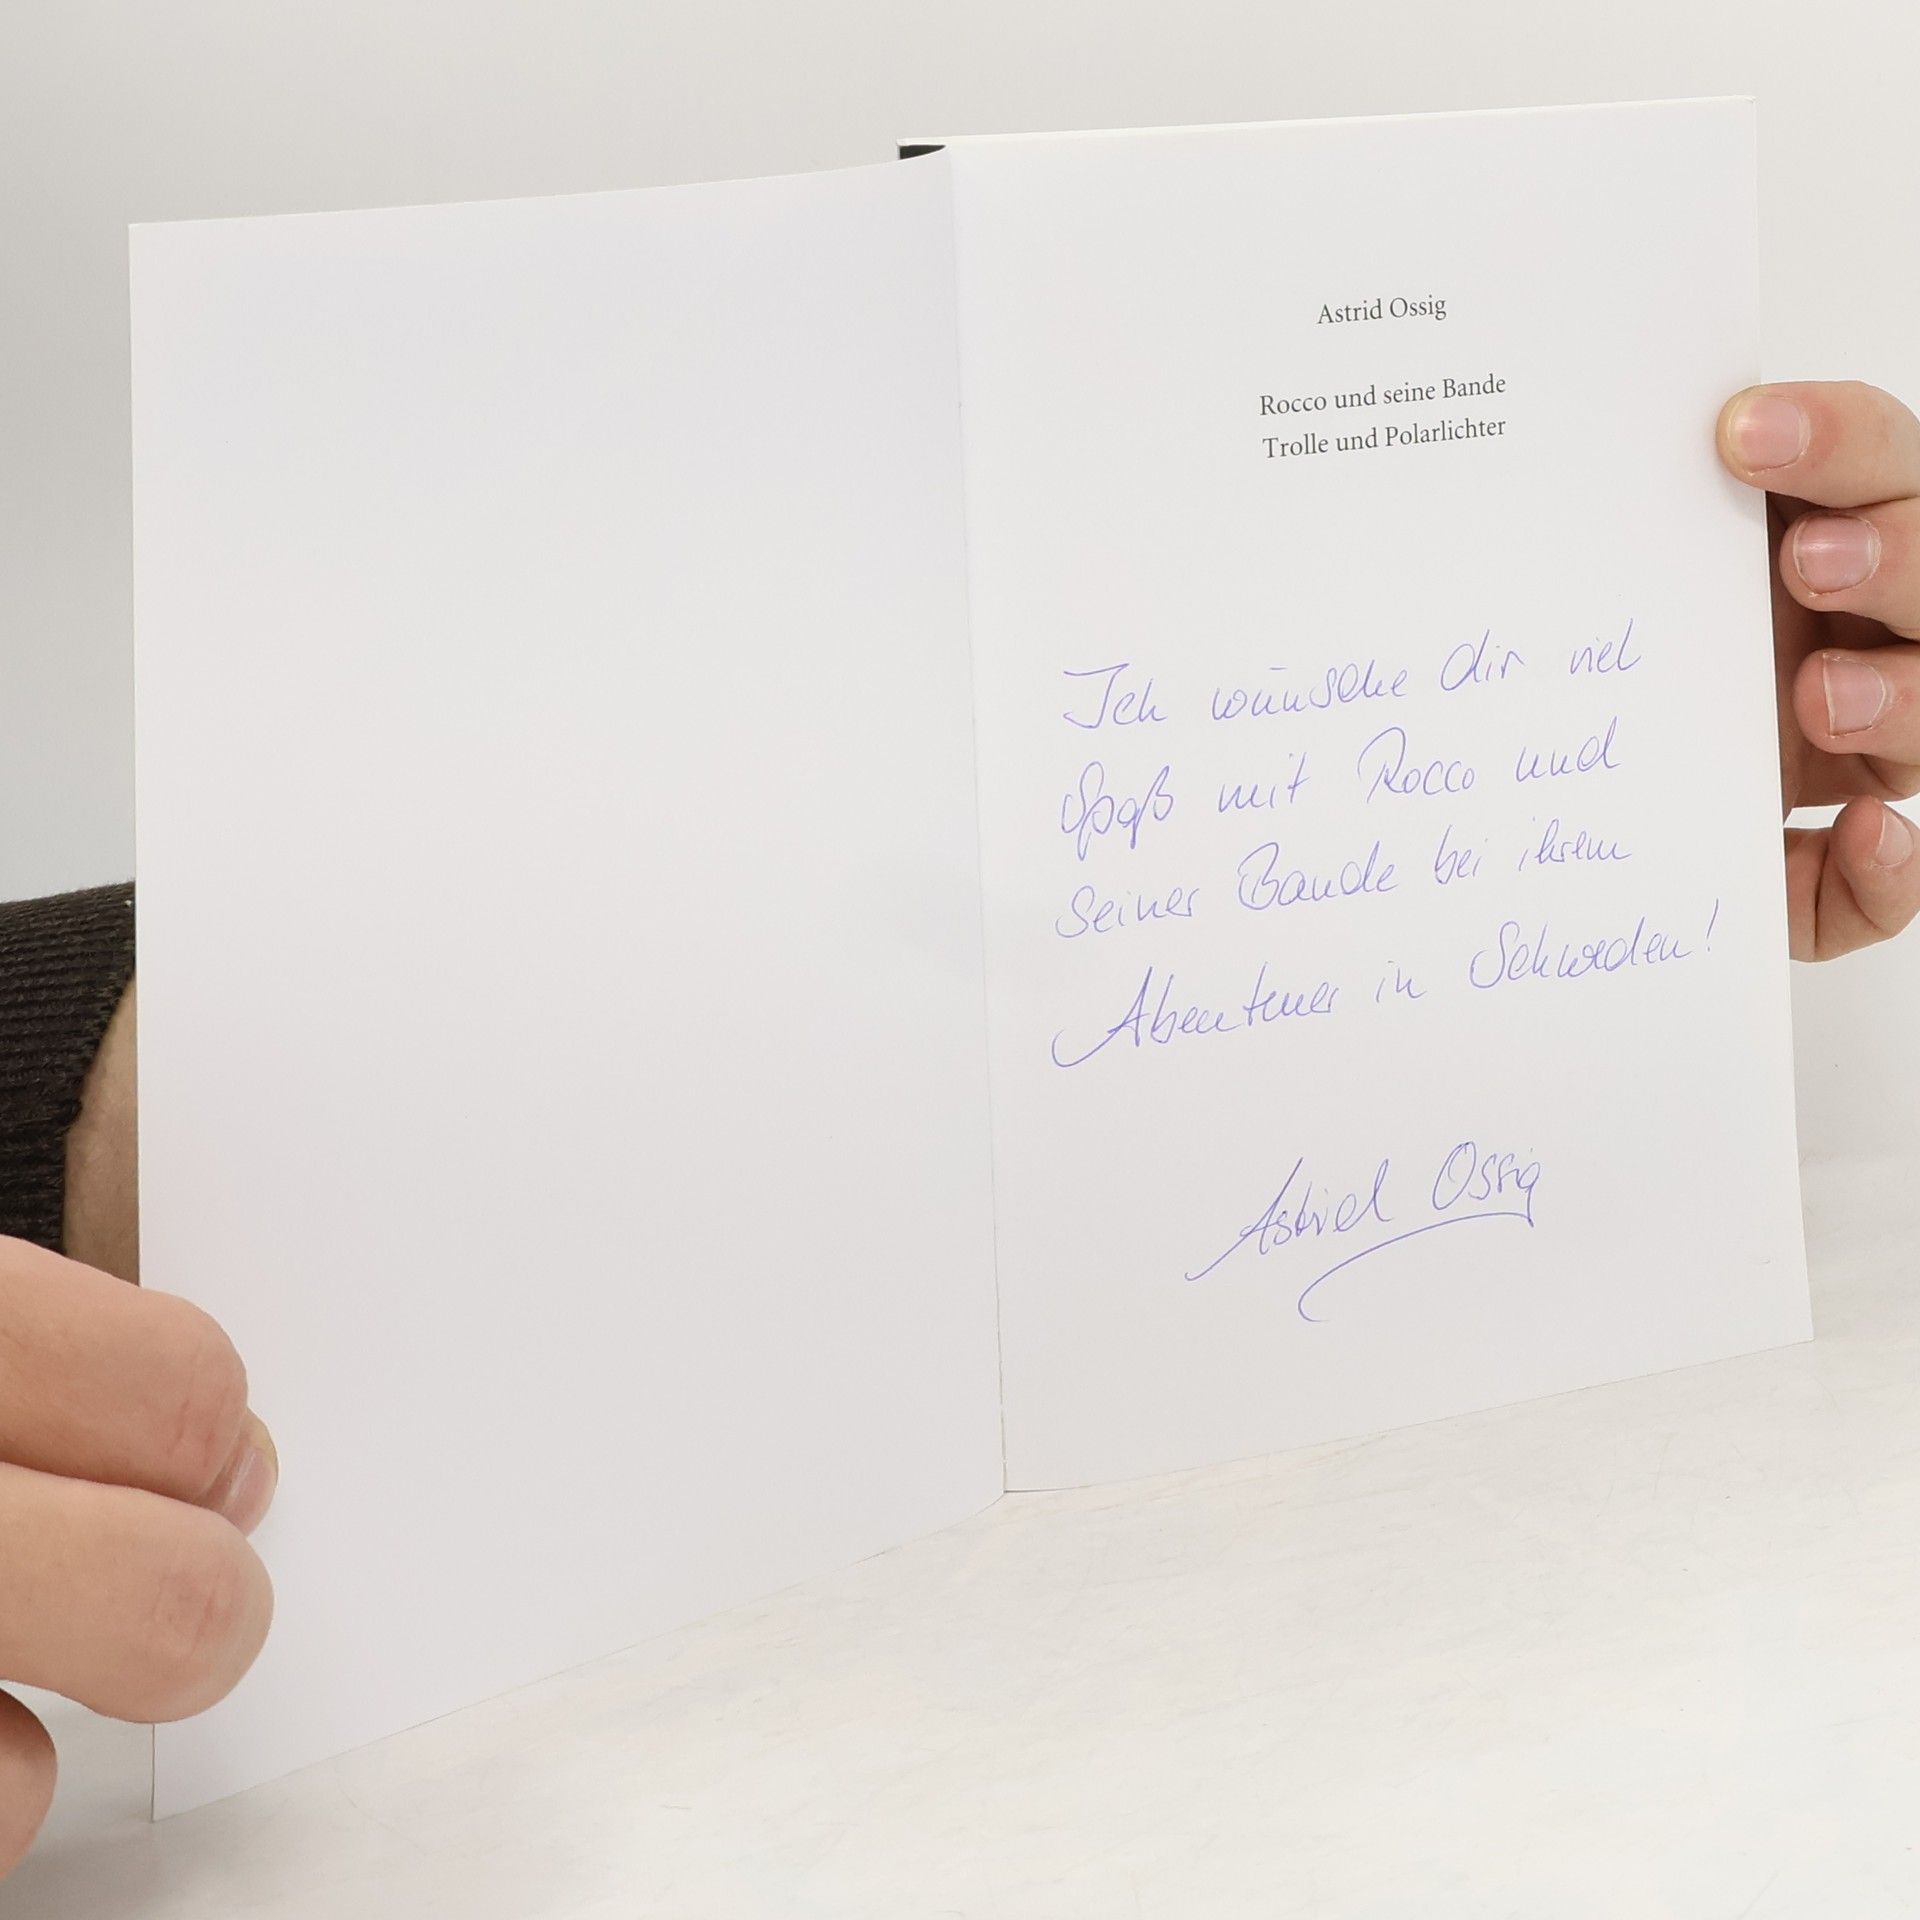 Astrid Ossig
Rocco und seine Bande
Trolle und Polarlichter
Ich wünsche dir viel
Spaß mit Rocco und
seiner Bande bei ihrem
Abenteuer in Schweden!
Astrid Ossig